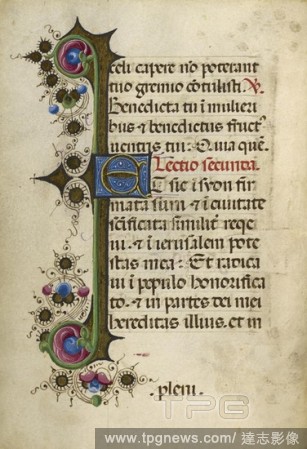 celi capere nō poterant
tuo gremio cōtulisti. V.
Benedicta tu i mulieri
bus & benedictus fruct'
uentris tui. Quia quē.
Lectio secunda.
ET sic i syon fir
mata sum & i ciuitate
scificata similit' reqe
ui. & i ierusalem pote
stas mea. Et radica
ui i populo honorifica
to. & in partes dei mei
hereditas illius. et in
plení.
TPG
www.tpgnews.com/達志影像